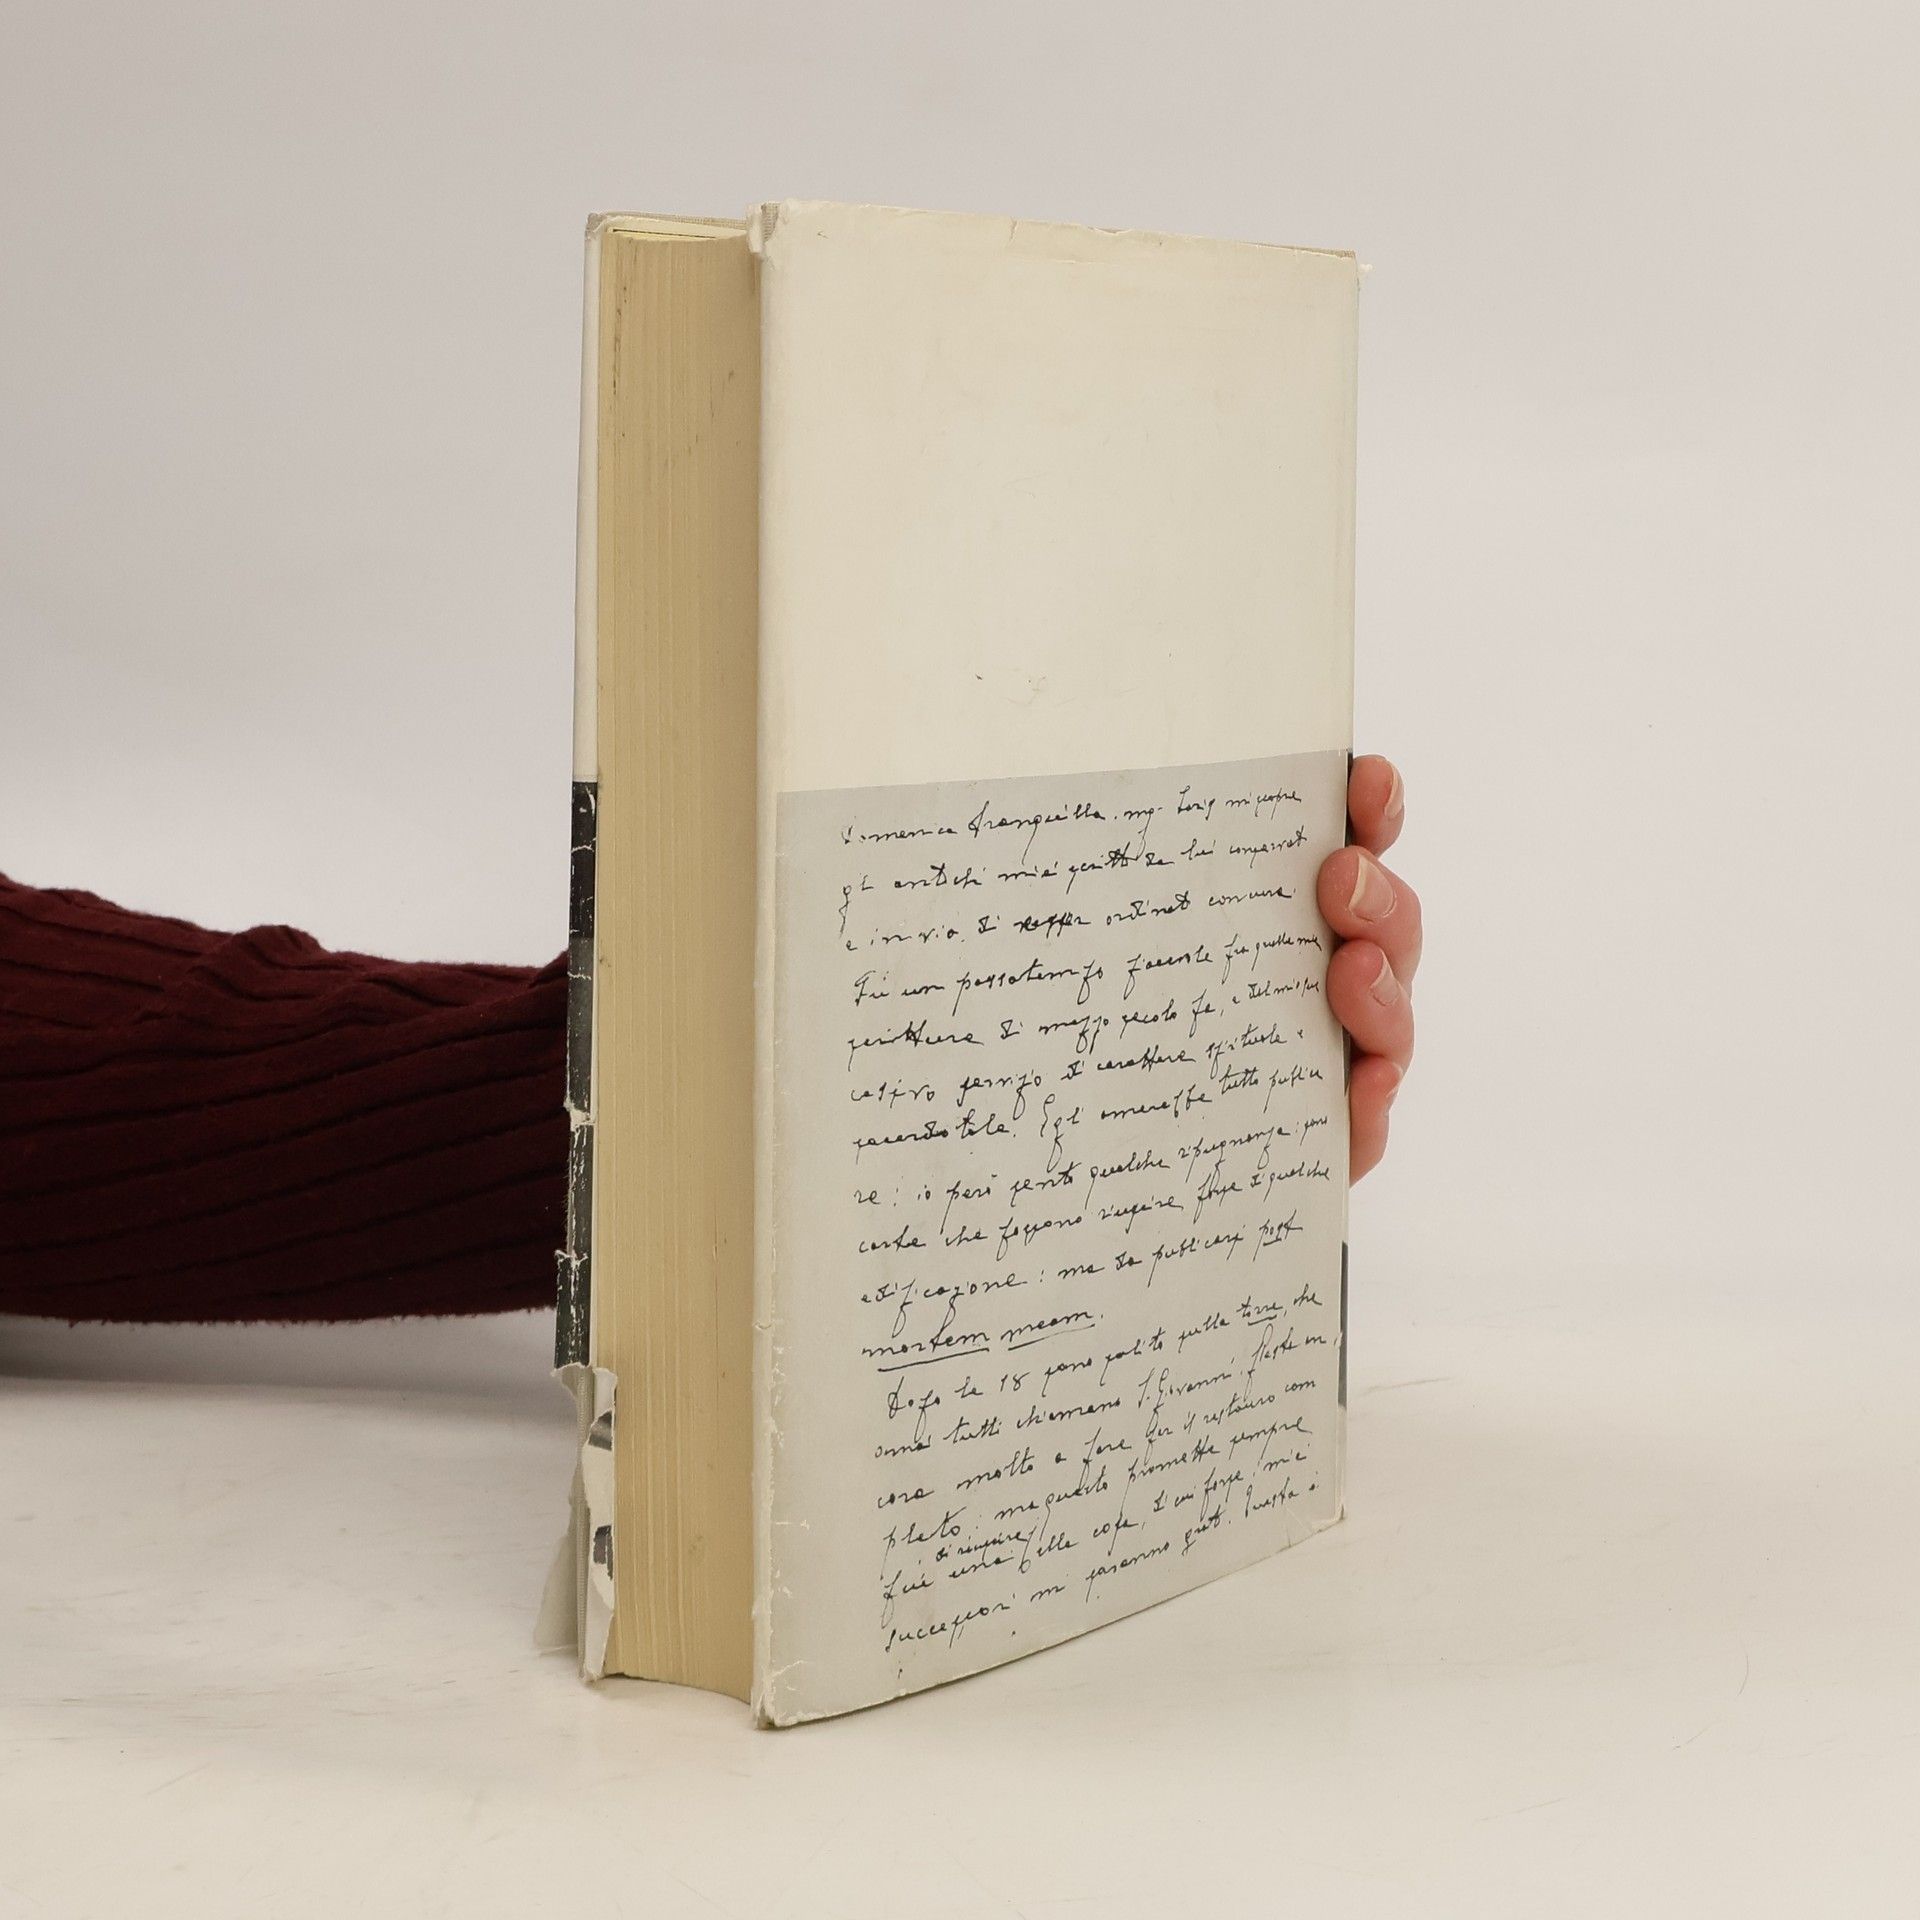 Domenica tranquilla. mgr. Loris mi scopre
gli antichi miei scritti da lui conservati
e in via di ordinati con cura.
Fu un passatempo piacevole fra quelle mie
scritture di mezzo secolo fa, e del mio
servizio di carattere spirituale e
sacerdotale. Egli amerebbe tutto publica
re: io però sento qualche ripugnanza: sono
carte che possono riuscire forse di qualche
edificazione: ma da publicarsi post
mortem meam.
Dopo le 18 sono salito sulla torre, che
ormai tutti chiamano S. Giovanni. Resta an,
cora molto a fare per il restauro com
pleto: ma questo promette sempre
di riuscire
una delle cose, di cui forse i miei
successori mi saranno grati. Questa è